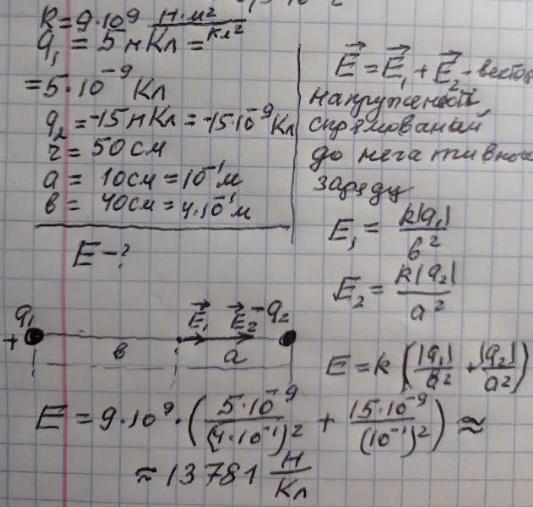 k = 9·10⁹ Н·м²/Кл²
q₁ = 5 нКл =
= 5·10⁻⁹ Кл
q₂ = -15 нКл = -15·10⁻⁹ Кл
r = 50 см
a = 10 см = 10⁻¹ м
b = 40 см = 4·10⁻¹ м
E - ?
E⃗ = E⃗₁ + E⃗₂ - вектор
напруженості,
спрямований
до негативного
заряду
E₁ = k|q₁|/b²
E₂ = k|q₂|/a²
q₁ E⃗₁ E⃗₂ -q₂
+ b a
E = k (|q₁|/b² + |q₂|/a²)
E = 9·10⁹ · (5·10⁻⁹/(4·10⁻¹)² + 15·10⁻⁹/(10⁻¹)²) ≈
≈ 13781 Н/Кл